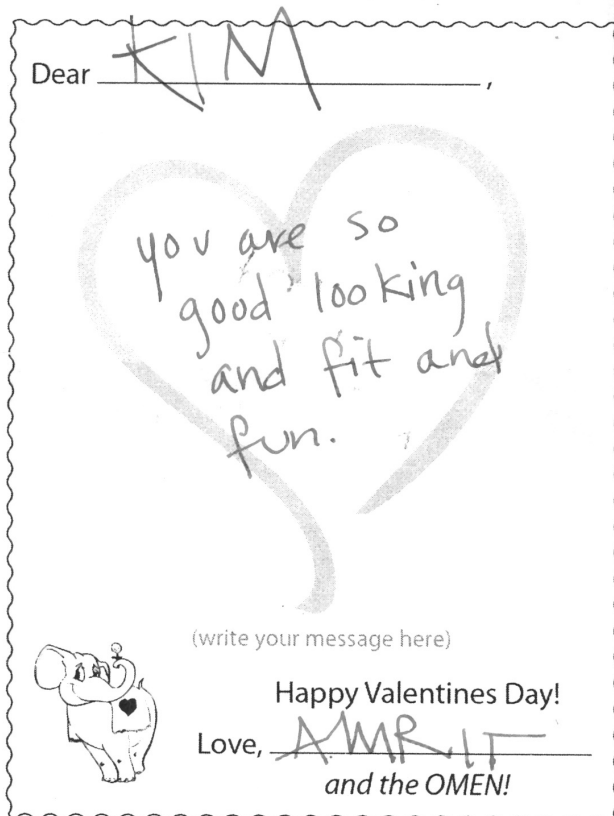 Dear KIM,
you are so
good looking
and fit and
fun.
(write your message here)
Happy Valentines Day!
Love, AMRIT
and the OMEN!